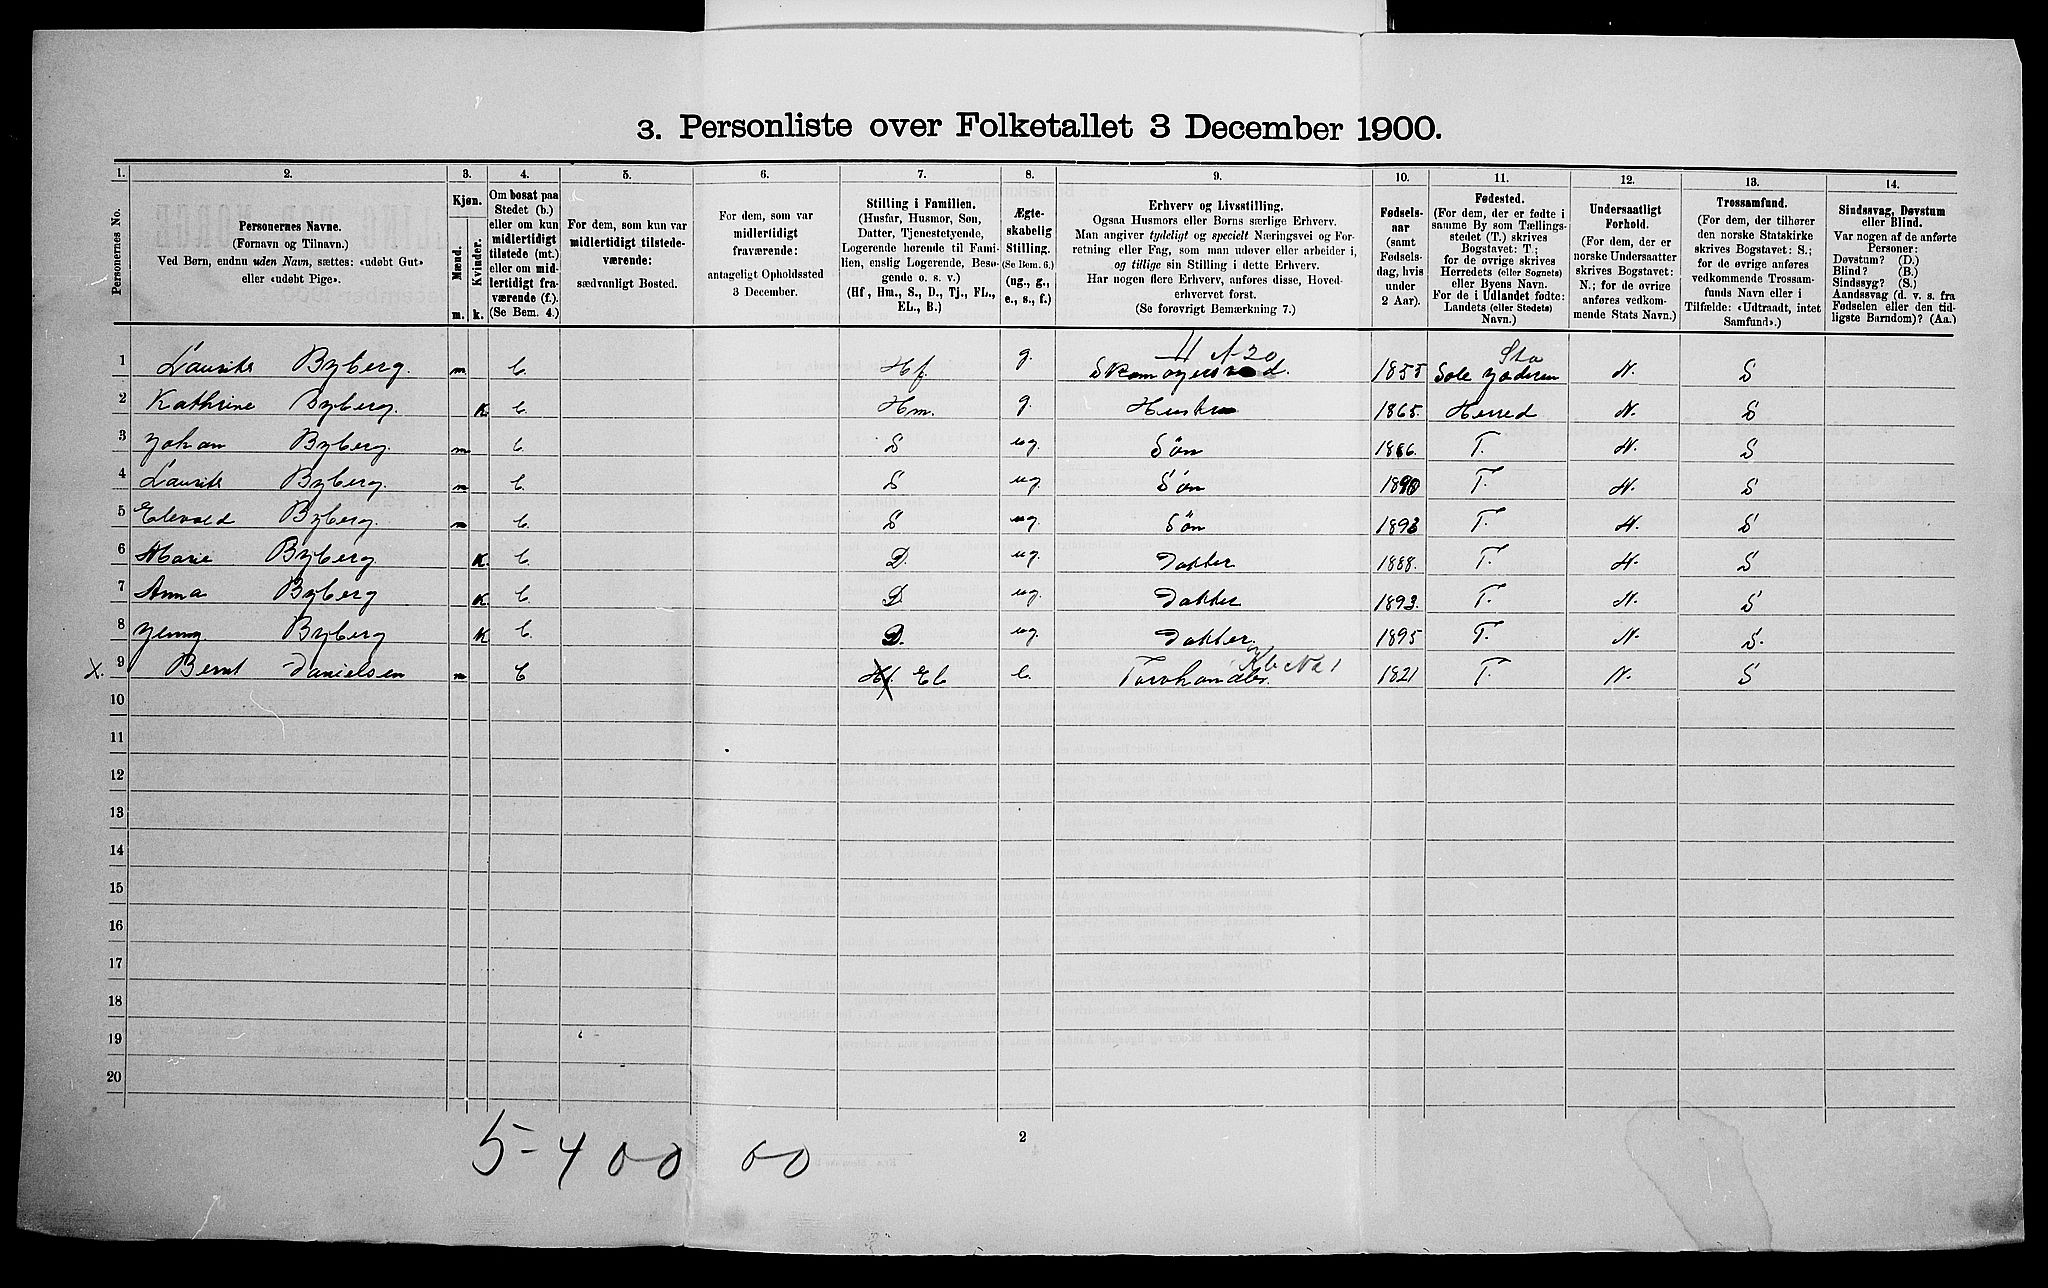 3. Personliste over Folketallet 3 December 1900.
1. 2. 3. 4. 5. 6. 7. 8. 9. 10. 11. 12. 13. 14.
Personernes No.
Personernes Navne.
(Fornavn og Tilnavn.)
Ved Børn, endnu uden Navn, sættes: «udøbt Gut»
eller «udøbt Pige».
Kjøn.
Mænd. Kvinder.
m. k.
Om bosat paa
Stedet (b.)
eller om kun
midlertidigt
tilstede (mt.)
eller om mid-
lertidigt fra-
værende (f.)
(Se Bem. 4.)
For dem, som kun var
midlertidigt tilstede-
værende:
sædvanligt Bosted.
For dem, som var
midlertidigt
fraværende:
antageligt Opholdssted
3 December.
Stilling i Familien.
(Husfar, Husmor, Søn,
Datter, Tjenestetyende,
Logerende hørende til Fami-
lien, enslig Logerende, Besø-
gende o. s. v.)
(Hf, Hm., S., D., Tj., FL.,
EL., B.)
Ægte-
skabelig
Stilling.
(Se Bem. 6.)
(ug., g.,
e., s., f.)
Erhverv og Livsstilling.
Ogsaa Husmors eller Børns særlige Erhverv.
Man angiver tydeligt og specielt Næringsvei og For-
retning eller Fag, som man udøver eller arbeider i,
og tillige sin Stilling i dette Erhverv.
Har nogen flere Erhverv, anføres disse, Hoved-
erhvervet først.
(Se forøvrigt Bemærkning 7.)
Fødsels-
aar
(samt
Fødsels-
dag, hvis
under
2 Aar).
Fødested.
(For dem, der er fødte i
samme By som Tællings-
stedet (T.) skrives
Bogstavet: T.;
for de øvrige skrives
Herredets (eller Sognets)
eller Byens Navn.
For de i Udlandet fødte:
Landets (eller Stedets)
Navn.)
Undersaatligt
Forhold.
(For dem, der er
norske Undersaatter
skrives Bogstavet:
N.; for de øvrige
anføres vedkom-
mende Stats Navn.)
Trossamfund.
(For dem, der tilhører
den norske Statskirke
skrives Bogstavet: S.;
for de øvrige anføres
vedkommende Trossam-
funds Navn eller i
Tilfælde: «Udtraadt, intet
Samfund».)
Sindssvag, Døvstum
eller Blind.
Var nogen af de anførte
Personer:
Døvstum? (D.)
Blind? (B.)
Sindssyg? (S.)
Aandssvag (d. v. s. fra
Fødselen eller den tid-
ligste Barndom)? (Aa.)
1 Laurits Byberg. m b. Hf g. 1855 Sole Jæderen Sta N. S
2 Kathrine Byberg. K b. Hm. g. Hustru 1865. Herred N. S
3 Johan Byberg. m b. S ug. Søn 1886. T. N. S
4 Laurits Byberg. m b. S ug. Søn 1890 T. N. S
5 Byberg. m b. S ug. Søn 1893 T. N. S
6 Marie Byberg. K. b. D. ug. Datter 1888. T. N. S
7 Anna Byberg K b. D. ug. Datter 1893. T. N. S
8 Jenny Byberg K b. D. ug. Datter 1895 T. N. S.
X. 9 Bernt Danielsen m b Hf. El e. Torvhandler. No 1 1821 T. N. S
10
11
12
13
14
15
16
17
18
19
20
5-400 00
2